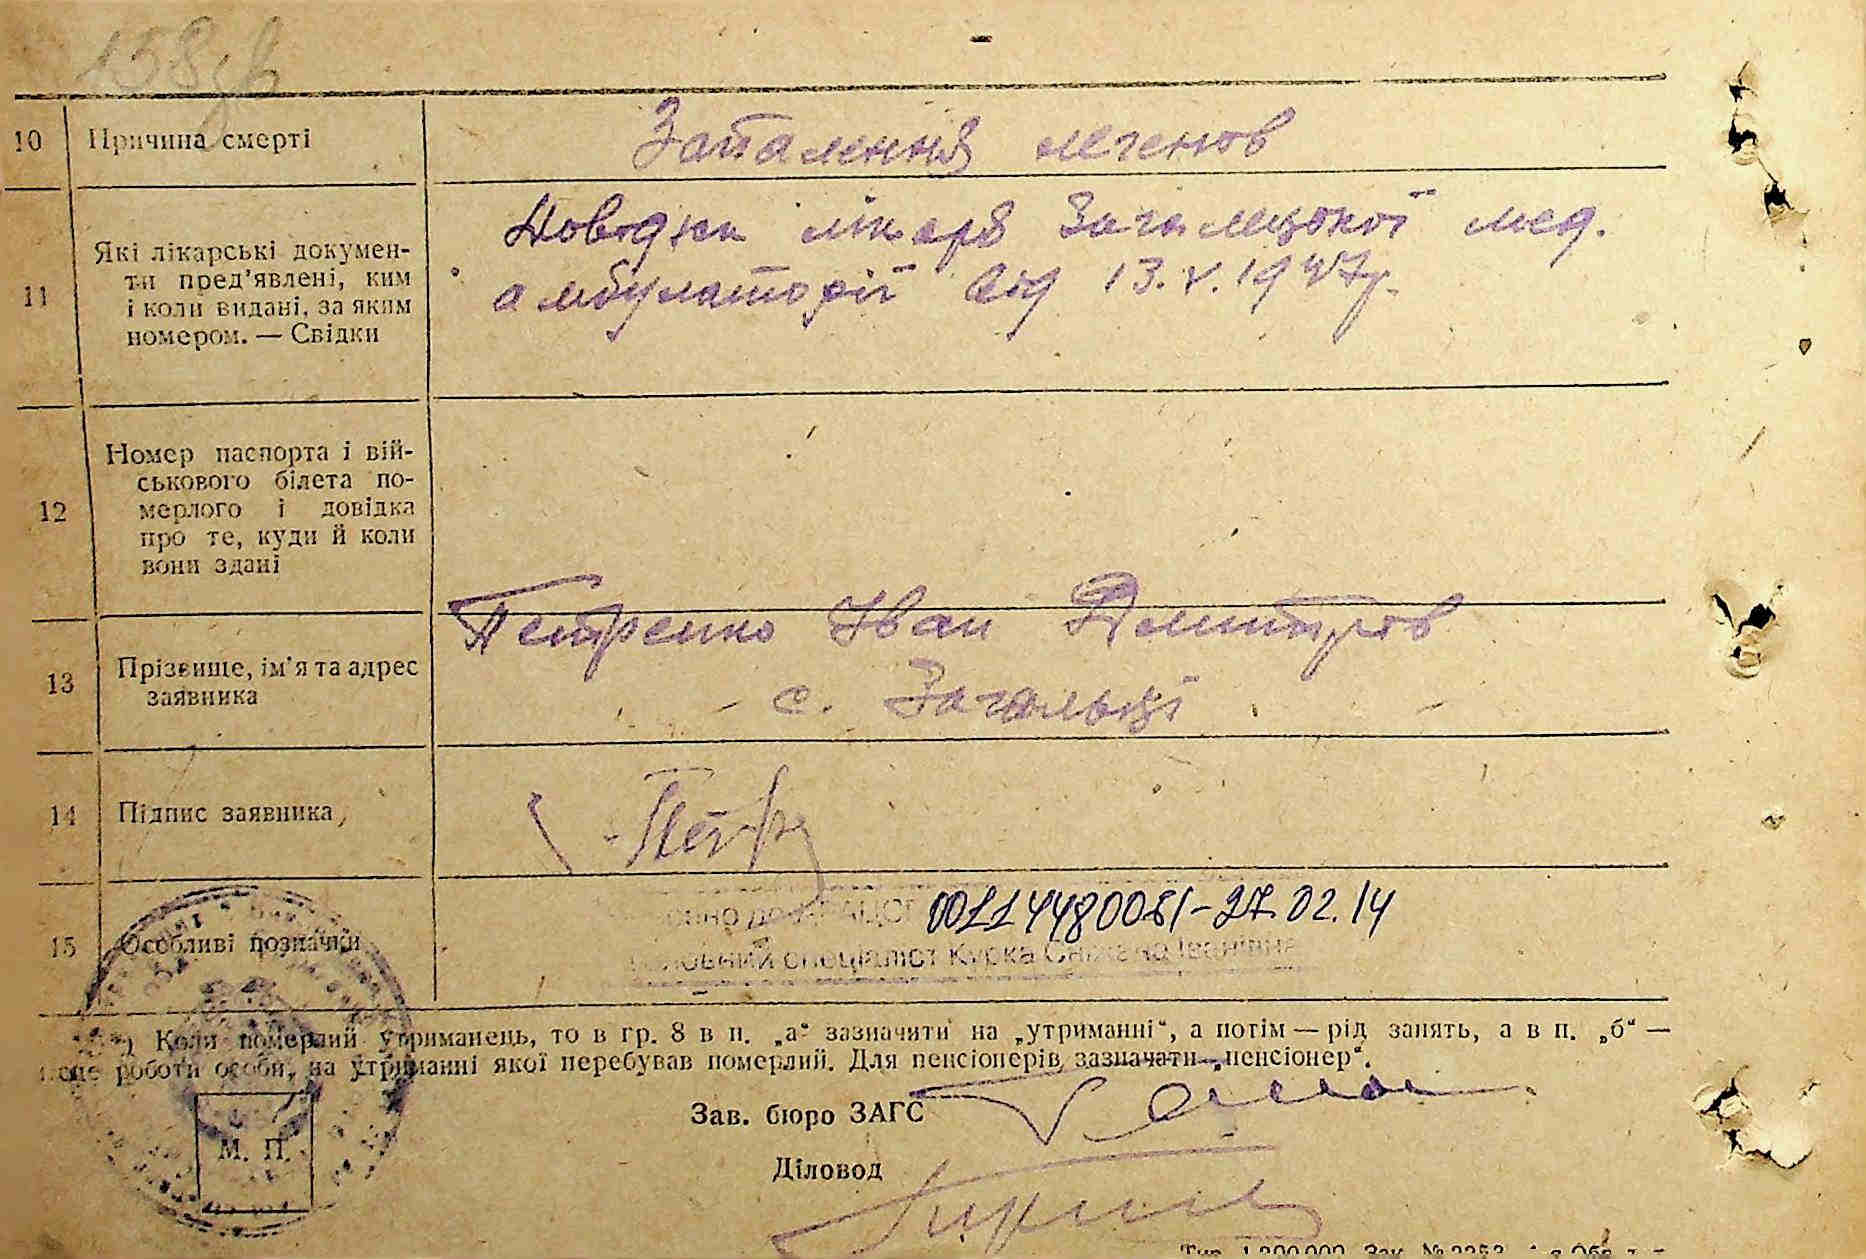 158
10 Причина смерті
Запалення легенов
11 Які лікарські докумен-
ти пред'явлені, ким
і коли видані, за яким
номером. — Свідки
Довідка лікаря Загалецької мед.
амбулаторії від 13.V.1947р.
12 Номер паспорта і вій-
ськового білета по-
мерлого і довідка
про те, куди й коли
вони здані
13 Прізвище, ім'я та адрес
заявника
Петренко Іван Дмитров
с. Загальці
14 Підпис заявника
Петр
15 Особливі позначки
до ДРАЦСГ 00114480081-27.02.14
Головний спеціаліст Курка Сніжана Іванівна
*) Коли померлий утриманець, то в гр. 8 в п. „а“ зазначити на „утриманні“, а потім — рід занять, а в п. „б“ —
місце роботи особи, на утриманні якої перебував померлий. Для пенсіонерів зазначати „пенсіонер“.
Зав. бюро ЗАГС
Діловод
М. П.
Тир. 1.200.000 Зак. № 2253